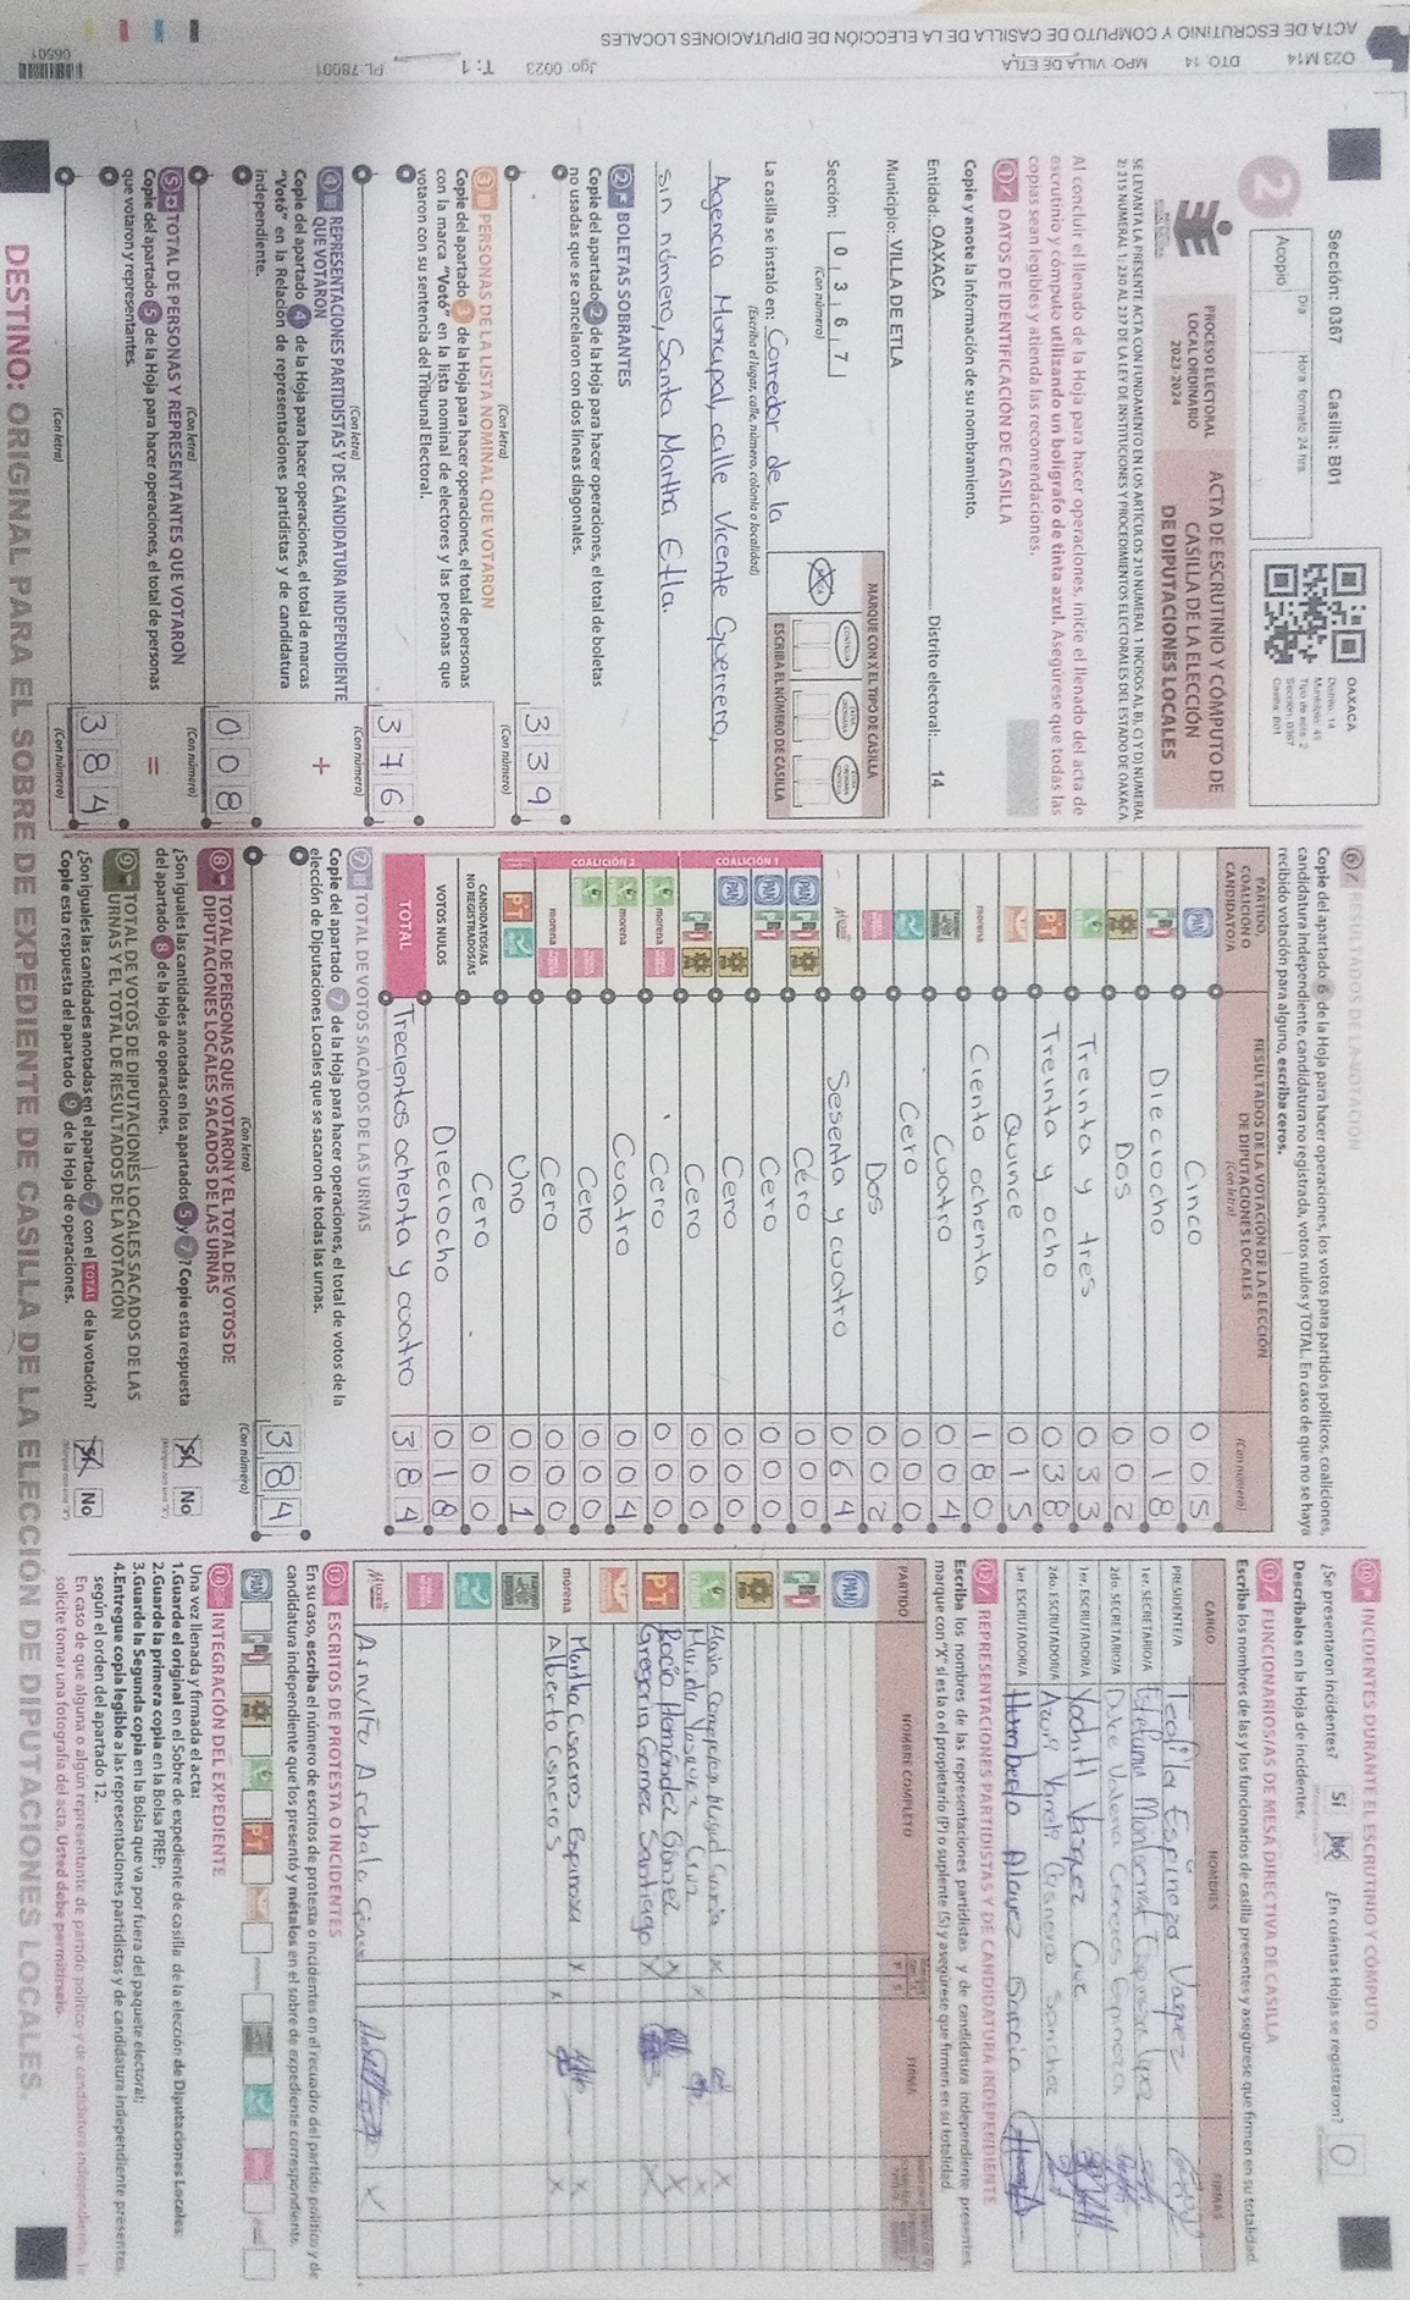 ACTA DE ESCRUTINIO Y COMPUTO DE CASILLA DE LA ELECCIÓN DE DIPUTACIONES LOCALES
O23 M14 DTO. 14 MPO. VILLA DE ETLA Jgo: 0023 T: 1 PL. 78001
06501
Sección: 0367 Casilla: B01
2
Día Hora: formato 24 hrs
Acopio
OAXACA
Distrito: 14
Municipio: 45
Tipo de acta: 2
Sección: 0367
Casilla: B01
PROCESO ELECTORAL
LOCAL ORDINARIO
2023-2024
ACTA DE ESCRUTINIO Y CÓMPUTO DE
CASILLA DE LA ELECCIÓN
DE DIPUTACIONES LOCALES
SE LEVANTA LA PRESENTE ACTA CON FUNDAMENTO EN LOS ARTÍCULOS 210 NUMERAL 1 INCISOS A), B), C) Y D) NUMERAL
2; 215 NUMERAL 1; 230 AL 237 DE LA LEY DE INSTITUCIONES Y PROCEDIMIENTOS ELECTORALES DEL ESTADO DE OAXACA.
Al concluir el llenado de la Hoja para hacer operaciones, inicie el llenado del acta de
escrutinio y cómputo utilizando un bolígrafo de tinta azul. Asegúrese que todas las
copias sean legibles y atienda las recomendaciones.
1 DATOS DE IDENTIFICACIÓN DE CASILLA
Copie y anote la información de su nombramiento.
Entidad: OAXACA Distrito electoral: 14
Municipio: VILLA DE ETLA
Sección: 0 3 6 7
(Con número)
MARQUE CON X EL TIPO DE CASILLA
ESCRIBA EL NÚMERO DE CASILLA
La casilla se instaló en: Corredor de la
(Escriba el lugar, calle, número, colonia o localidad)
Agencia Municipal, calle Vicente Guerrero,
sin número, Santa Martha Etla.
2 BOLETAS SOBRANTES
Copie del apartado 2 de la Hoja para hacer operaciones, el total de boletas
no usadas que se cancelaron con dos líneas diagonales.
3 3 9
(Con letra) (Con número)
3 PERSONAS DE LA LISTA NOMINAL QUE VOTARON
Copie del apartado 3 de la Hoja para hacer operaciones, el total de personas
con la marca "Votó" en la lista nominal de electores y las personas que
votaron con su sentencia del Tribunal Electoral.
3 7 6
(Con letra) (Con número)
4 REPRESENTACIONES PARTIDISTAS Y DE CANDIDATURA INDEPENDIENTE
QUE VOTARON
+
Copie del apartado 4 de la Hoja para hacer operaciones, el total de marcas
"Votó" en la Relación de representaciones partidistas y de candidatura
independiente.
0 0 8
(Con letra) (Con número)
5 TOTAL DE PERSONAS Y REPRESENTANTES QUE VOTARON
=
Copie del apartado 5 de la Hoja para hacer operaciones, el total de personas
que votaron y representantes.
3 8 4
(Con letra) (Con número)
6 RESULTADOS DE LA VOTACIÓN
Copie del apartado 6 de la Hoja para hacer operaciones, los votos para partidos políticos, coaliciones,
candidatura independiente, candidatura no registrada, votos nulos y TOTAL. En caso de que no se haya
recibido votación para alguno, escriba ceros.
PARTIDO, COALICIÓN O CANDIDATO/A
RESULTADOS DE LA VOTACIÓN DE LA ELECCIÓN
DE DIPUTACIONES LOCALES
(Con letra) (Con número)
PAN Cinco 0 0 5
PRI Dieciocho 0 1 8
PRD Dos 0 0 2
Treinta y tres 0 3 3
PT Treinta y ocho 0 3 8
Quince 0 1 5
morena Ciento ochenta 1 8 0
Cuatro 0 0 4
Cero 0 0 0
Dos 0 0 2
Sesenta y cuatro 0 6 4
COALICIÓN 1
PAN PRI PRD Cero 0 0 0
PAN PRI Cero 0 0 0
PAN PRD Cero 0 0 0
PRI PRD Cero 0 0 0
COALICIÓN 2
morena Cero 0 0 0
morena Cuatro 0 0 4
Cero 0 0 0
morena Cero 0 0 0
PT Uno 0 0 1
CANDIDATOS/AS NO REGISTRADOS/AS Cero 0 0 0
VOTOS NULOS Dieciocho 0 1 8
TOTAL Trecientos ochenta y cuatro 3 8 4
7 TOTAL DE VOTOS SACADOS DE LAS URNAS
Copie del apartado 7 de la Hoja para hacer operaciones, el total de votos de la
elección de Diputaciones Locales que se sacaron de todas las urnas.
3 8 4
(Con letra) (Con número)
8 TOTAL DE PERSONAS QUE VOTARON Y EL TOTAL DE VOTOS DE
DIPUTACIONES LOCALES SACADOS DE LAS URNAS
¿Son iguales las cantidades anotadas en los apartados 5 y 7? Copie esta respuesta
del apartado 8 de la Hoja de operaciones.
Sí No
9 TOTAL DE VOTOS DE DIPUTACIONES LOCALES SACADOS DE LAS
URNAS Y EL TOTAL DE RESULTADOS DE LA VOTACIÓN
¿Son iguales las cantidades anotadas en el apartado 7 con el TOTAL de la votación?
Copie esta respuesta del apartado 9 de la Hoja de operaciones.
Sí No
10 INCIDENTES DURANTE EL ESCRUTINIO Y CÓMPUTO
¿Se presentaron incidentes? Sí No ¿En cuántas Hojas se registraron? 0
Descríbalos en la Hoja de incidentes.
11 FUNCIONARIOS/AS DE MESA DIRECTIVA DE CASILLA
Escriba los nombres de las y los funcionarios de casilla presentes y asegúrese que firmen en su totalidad
CARGO NOMBRES FIRMAS
PRESIDENTE/A Teofila Espinoza Vasquez
1er. SECRETARIO/A Estefania Monserrat Espinoza Lopez
2do. SECRETARIO/A Dulce Valeria Espinoza
1er. ESCRUTADOR/A Xochitl Vasquez Cruz
2do. ESCRUTADOR/A Cisneros Sanchez
3er. ESCRUTADOR/A Humberto Garcia
12 REPRESENTACIONES PARTIDISTAS Y DE CANDIDATURA INDEPENDIENTE
Escriba los nombres de las representaciones partidistas y de candidatura independiente presentes,
marque con "X" si es la o el propietario (P) o suplente (S) y asegúrese que firmen en su totalidad
PARTIDO NOMBRE COMPLETO P S FIRMA
PAN
PRI
PRD
Maria Concepcion Garcia X X
Marida Vasquez Cruz X X
PT Rocío Hernández Gómez X X
Gregoria Gomez Santiago X X
morena Martha Cisneros Espinosa X X
Alberto Cisneros X X
Arnulfo X
13 ESCRITOS DE PROTESTA O INCIDENTES
En su caso, escriba el número de escritos de protesta o incidentes en el recuadro del partido político y de
candidatura independiente que los presentó y métalos en el sobre de expediente correspondiente.
14 INTEGRACIÓN DEL EXPEDIENTE
Una vez llenada y firmada el acta:
1.Guarde el original en el Sobre de expediente de casilla de la elección de Diputaciones Locales;
2.Guarde la primera copia en la Bolsa PREP;
3.Guarde la Segunda copia en la Bolsa que va por fuera del paquete electoral;
4.Entregue copia legible a las representaciones partidistas y de candidatura independiente presentes,
según el orden del apartado 12.
En caso de que alguna o algún representante de partido político y de candidatura independiente, le
solicite tomar una fotografía del acta, Usted debe permitírselo.
DESTINO: ORIGINAL PARA EL SOBRE DE EXPEDIENTE DE CASILLA DE LA ELECCIÓN DE DIPUTACIONES LOCALES.